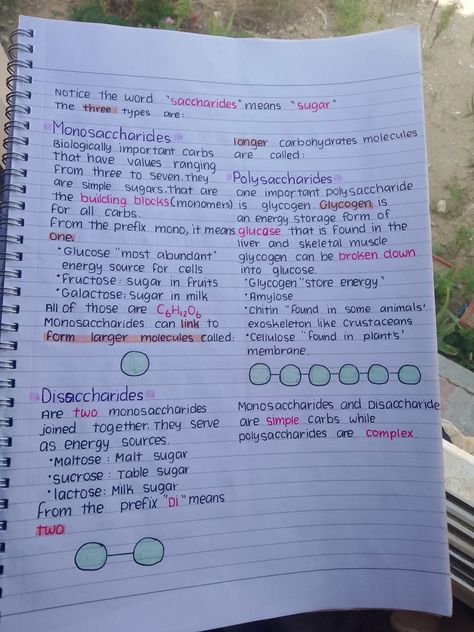 Notice the word "saccharides" means "sugar"
The three types are:
Monosaccharides
Biologically important carbs
That have values ranging
From three to seven. They
are simple sugars. that are
the building blocks (monomers)
for all carbs.
From the prefix mono, it means
one.
•Glucose "most abundant"
energy source for cells
•Fructose: sugar in fruits
•Galactose: sugar in milk
All of those are C6H12O6
Monosaccharides can link to
form larger molecules called:
Disaccharides
Are two monosaccharides
joined together. They serve
as energy sources.
•Maltose: Malt sugar
•sucrose: Table sugar
•lactose: Milk sugar
From the prefix "Di" means
two
longer carbohydrates molecules
are called:
Polysaccharides
one important polysaccharide
is glycogen. Glycogen is
an energy storage form of
glucose that is found in the
liver and skeletal muscle
glycogen can be broken down
into glucose.
•Glycogen "store energy"
•Amylose
•chitin "found in some animals'
exoskeleton like crustaceans
•Cellulose "found in plant's'
membrane.
Monosaccharides and Disaccharide
are simple carbs while
polysaccharides are complex.